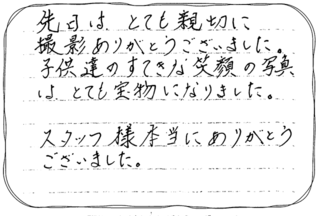 先日は、とても親切に
撮影ありがとうございました。
子供達のすてきな笑顔の写真
は、とても宝物になりました。
スタッフ様本当にありがとう
ございました。